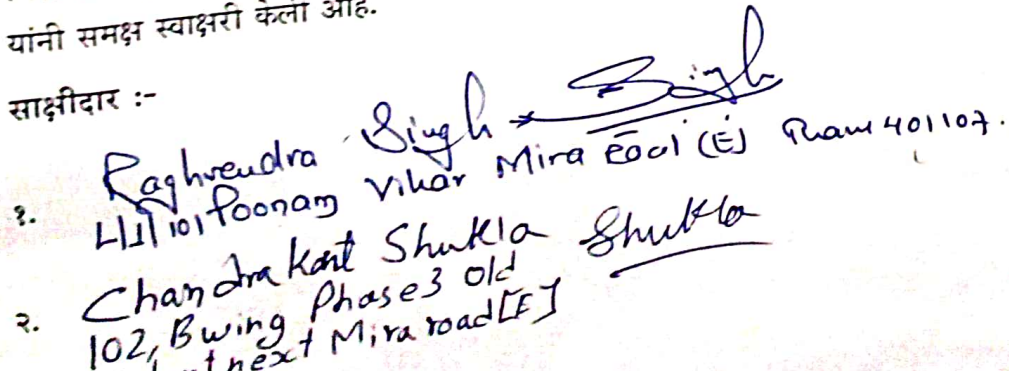 यांनी समक्ष स्वाक्षरी केली आहे.
साक्षीदार :-
१. Raghvendra Singh Singh
101 Poonam Vihar Mira (E) Thane 401107.
२. Chandrakant Shukla Shukla
102, B wing Phase 3 old
next Mira road [E]